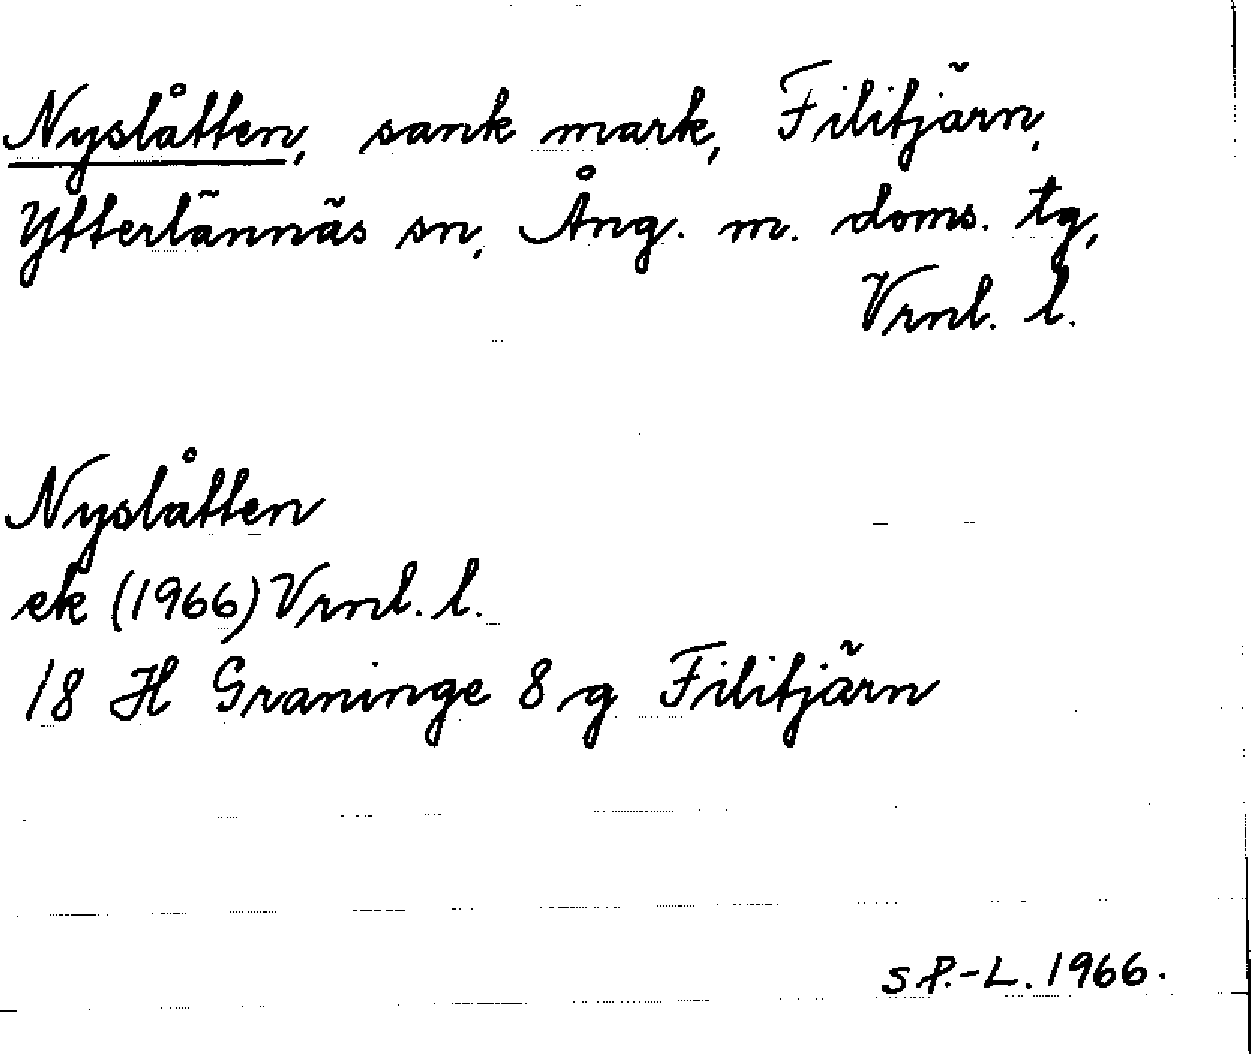 Nyslåtten, sank mark, Filitjärn,
Ytterlännäs sn, Ång. m. doms. tg,
Vrnl. l.
Nyslåtten
ek (1966) Vrnl. l.
18 H Graninge 8 g Filitjärn
S P.-L. 1966.